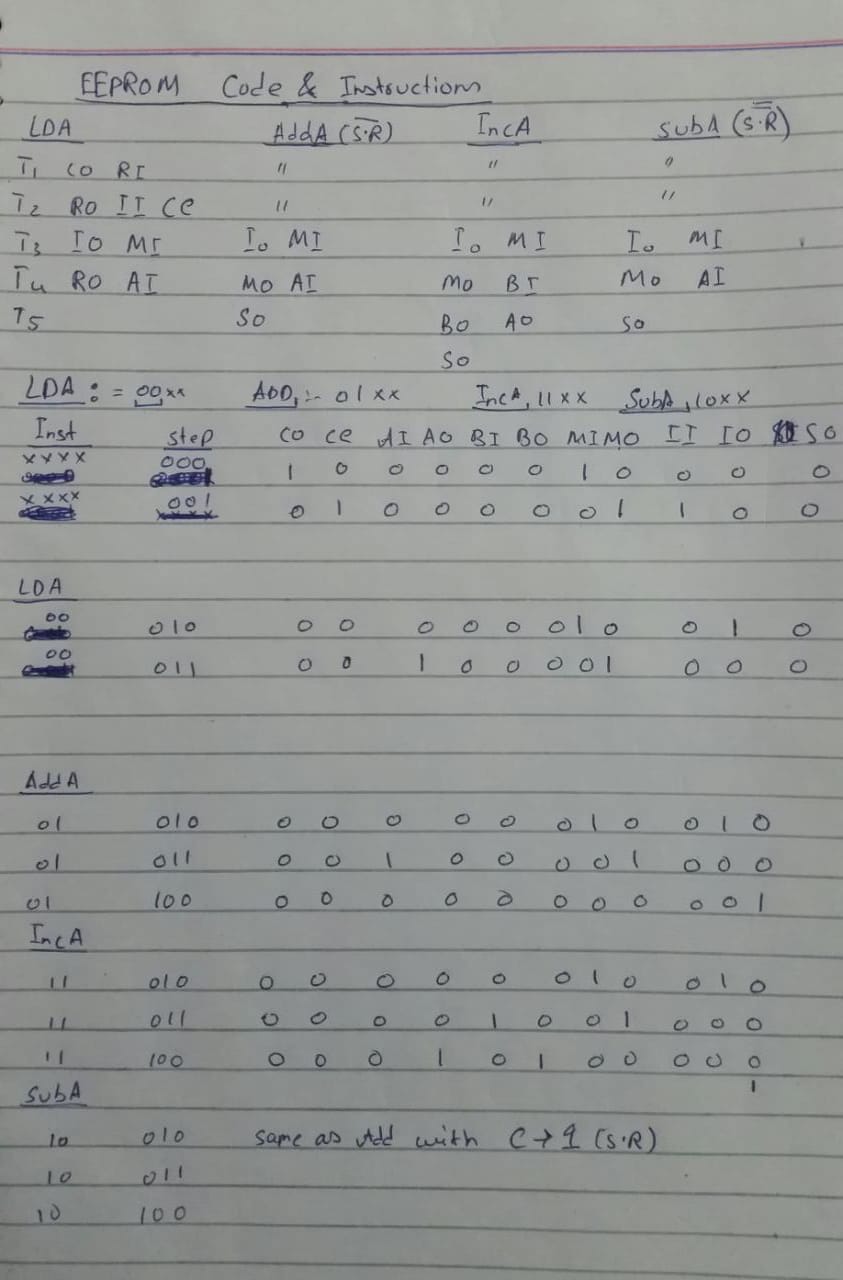 EEPROM Code & Instructions
LDA AddA (S̅·̅R̅) IncA SubA (S·R)
T1 CO RI " " "
T2 RO II CE " " "
T3 IO MI Io MI Io MI Io MI
T4 RO AI MO AI MO BI MO AI
T5 SO BO AO SO
SO
LDA := 00xx ADD, :- 01xx IncA, 11xx SubA, 10xx
Inst step CO CE AI AO BI BO MI MO II IO SO
xxxx 000 1 0 0 0 0 0 1 0 0 0 0
xxxx 001 0 1 0 0 0 0 0 1 1 0 0
LDA
00 010 0 0 0 0 0 0 1 0 0 1 0
00 011 0 0 1 0 0 0 0 1 0 0 0
AddA
01 010 0 0 0 0 0 0 1 0 0 1 0
01 011 0 0 1 0 0 0 0 1 0 0 0
01 100 0 0 0 0 0 0 0 0 0 0 1
IncA
11 010 0 0 0 0 0 0 1 0 0 1 0
11 011 0 0 0 0 1 0 0 1 0 0 0
11 100 0 0 0 1 0 1 0 0 0 0 0
1
SubA
10 010 Same as Add with C→1 (S·R)
10 011
10 100